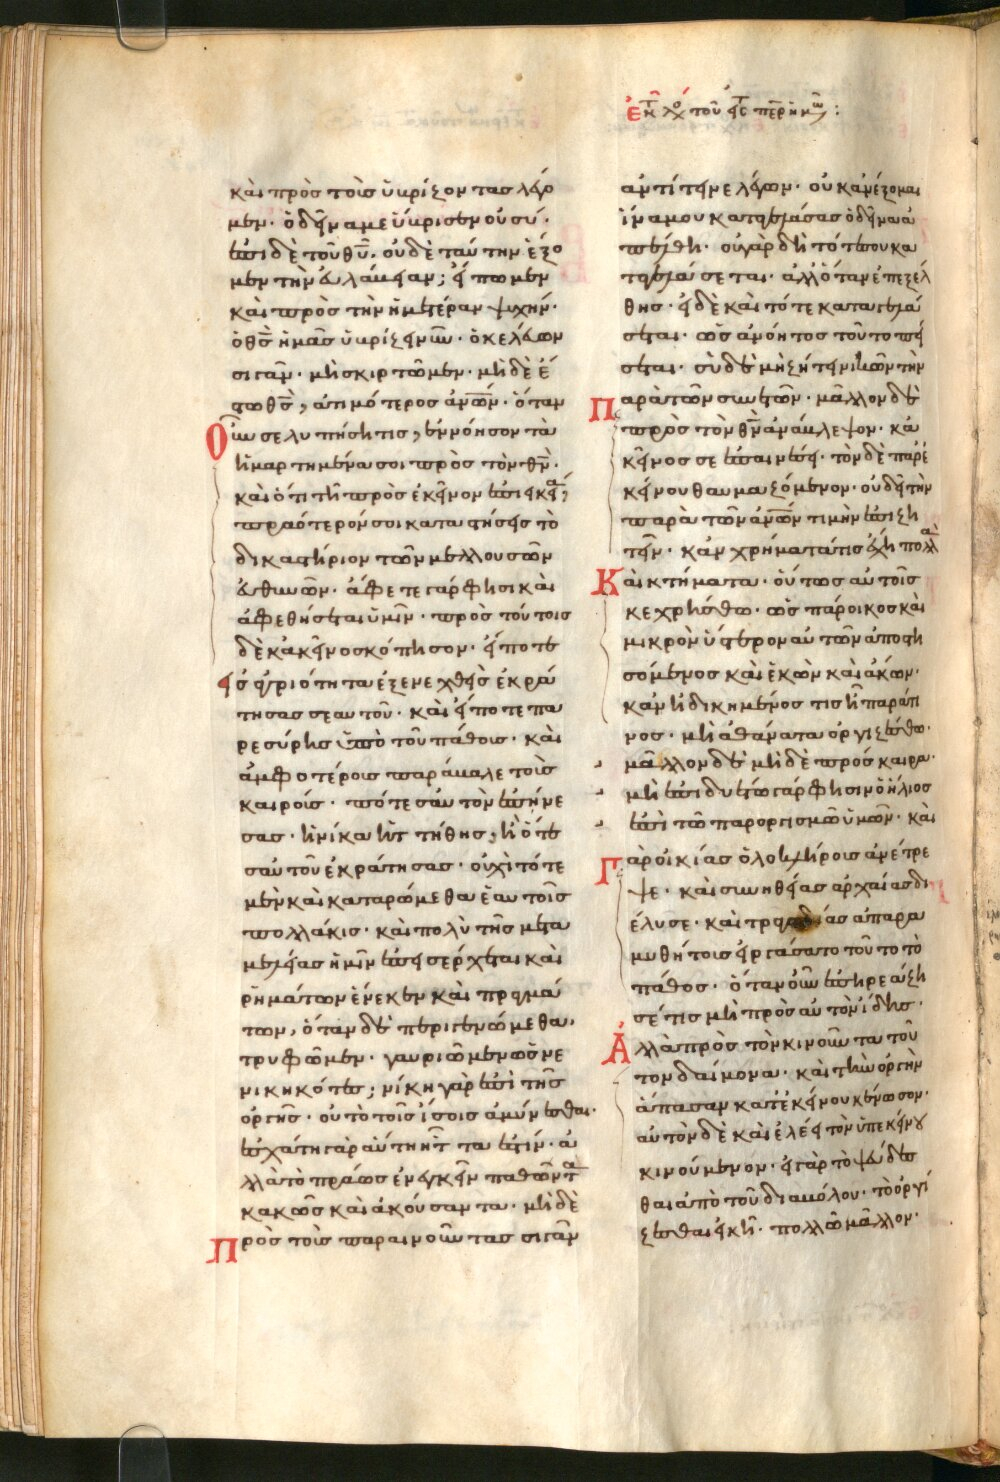 ἐκ τ χο τοῦ ερ ημω :
καὶ πρὸς τοῖς ὑβρίζοντας λέγο
μεν· ὁ δεῖνα με ὕβρισεν οὐ σύ·
ἐπὶ δὲ τοῦ θυ, οὐδὲ ταύτην ἔχο
μεν τὴν εὐλάβειαν; εἴπωμεν
καὶ πρὸς τὴν ἡμετέραν ψυχήν·
ὁ θς ἡμᾶς ὑβρίζειν ὁ κελεύων
σιγᾶν· μὴ σκιρτῶμεν· μὴ δὲ ἔ
στω θς, ἀτιμότερος ἀνων· ὅταν
Οὖν σε λυπήση τις, ἐννόησον τὰ
ἡμαρτημένα σοι πρὸς τὸν θν·
καὶ ὅτι τῆ πρὸς ἐκεῖνον ἐπιεικεία,
πραότερόν σοι καταστήσεις τὸ
δικαστήριον τῶν μελλουσῶν
εὐθυνῶν· ἄφετε γάρ φησι καὶ
ἀφεθήσεται ὑμῖν· πρὸς τούτοις
δὲ κἀκεῖνο σκόπησον· εἴποτε
εἰς ἀγριότητα ἐξενεχθεὶς ἐκρά
τησας σεαυτοῦ· καὶ εἴποτε πα
ρεσύρης ὑπὸ τοῦ πάθους· καὶ
ἀμφοτέροις παράβαλε τοῖς
καιροῖς· πότε σαυτὸν ἐπήνε
σας· ἡνίκα ἡττήθης, ἢ ὅτε
σαυτοῦ ἐκράτησας· οὐχὶ τότε
μὲν καὶ καταρώμεθα ἑαυτοῖς
πολλάκις· καὶ πολὺ τῆς μετα
μελείας ἡμῖν ἐπεισέρχεται καὶ
ρημάτων ἕνεκεν καὶ πραγμά
των, ὅταν δὲ περιγενώμεθα,
τρυφῶμεν· γαυριῶμεν ὡς νε
νικηκότες; νίκη γὰρ ἐστὶ τῆς
ὀργῆς· οὐ τὸ τοῖς ἴσοις ἀμύνεσθαι·
ἐσχάτη γὰρ αὕτη ἧττα ἐστίν· ἀ
λλὰ τὸ πράως ἐνεγκεῖν παθόντα
κακῶς καὶ ἀκούσαντα· μὴ δὲ
Πρὸς τοῖς παραινοῦντας σιγᾶν
ἀντίτεινε λέγων· οὐκ ἀνέξομαι
ἵνα μου καταγελάσας ὁ δεῖνα ἀ
πέλθη· οὐ γὰρ δὴ τότέ σου κα
ταγελάσεται· ἀλλ' ὅταν ἐπεξέλ
θης· εἰ δὲ καὶ τότε καταγελά
σεται· ὡς ἀνόητος τοῦτο πεί
σεται· σὺ δὲ μὴ ζήτει νικῶν τὴν
Παρὰ τῶν συνετῶν· μᾶλλον δὲ
πρὸς τὸν θν ἀνάβλεψον· κα
κεῖνος σε ἐπαινέσει· τὸν δὲ παρ' ἐ
κείνου θαυμαζόμενον· οὐ δεῖ τὴν
παρὰ τῶν ἀνων τιμὴν ἐπιζη
τεῖν· κἂν χρήματά τις ἔχη πολλὰ
Καὶ κτήματα· οὕτως αὐτοῖς
κεχρήσθω· ὡς πάροικος καὶ
μικρὸν ὕστερον αὐτῶν ἀποστη
σόμενος καὶ ἑκὼν καὶ ἄκων·
κἂν ἠδικημένος τις ἦ παρά τι
νος· μὴ ἀθάνατα ὀργιζέσθω·
μᾶλλον δὲ μὴ δὲ πρόσκαιρα·
μὴ ἐπιδυέτω γάρ φησιν ὁ ἥλιος
ἐπὶ τῶ παροργισμῶ ὑμῶν· καὶ
Γὰρ οἰκίας ὁλοκλήρους ἀνέτρε
ψε· καὶ συνηθείας ἀρχαίας δι
έλυσε· καὶ τραγωδίας ἀπαρα
μυθήτους εἰργάσατο τοῦτο τὸ
πάθος· ὅταν οὖν ἐπηρεάζη
σέ τις μὴ πρὸς αὐτὸν ἴδης·
Ἀλλὰ πρὸς τὸν κινοῦντα τοῦ
τον δαίμονα· καὶ τὴν ὀργὴν
ἅπασαν κατ' ἐκείνου κένωσον·
αὐτὸν δὲ καὶ ἐλέει τὸν ὑπ' ἐκείνου
κινούμενον· εἰ γὰρ τὸ ψεύδεσ
θαι ἀπὸ τοῦ διαβόλου· τὸ ὀργί
ζεσθαι εἰκῆ· πολλῶ μᾶλλον·